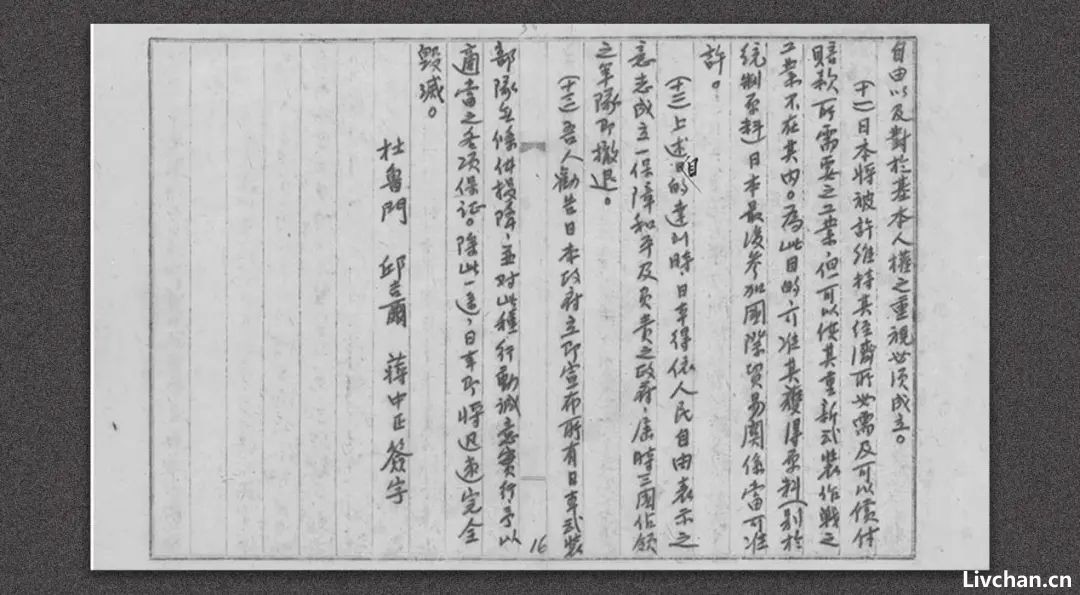 自由以及對於基本人權之重視必須成立。
(十一)日本將被許維持其經濟所必需及可以償付
賠款所需要之工業,但可以供其重新武裝作戰之
工業不在其內。為此目的,亦准其獲得原料(別於
統制原料)日本最後參加國際貿易關係當可准
許。
(十二)上述目的達到時,日本得依人民自由表示之
意志成立一保障和平及負責之政府,屆時三國佔領
之軍隊即撤退。
(十三)吾人勸告日本政府立即宣布所有日本武裝
部隊無條件投降,並对此種行動誠意實行予以
適當之各項保証。除此一途,日本即將迅速完全
毀滅。
杜魯門 邱吉爾 蔣中正簽字
16
Livchan.cn